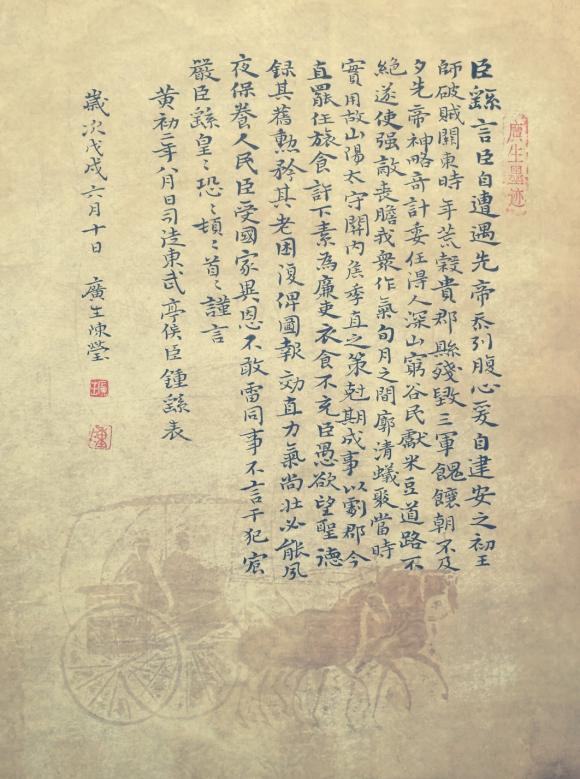 廣生墨迹
臣繇言臣自遭遇先帝忝列腹心爰自建安之初王
師破賊關東時年荒穀貴郡縣殘毀三軍餽饟朝不及
夕先帝神略奇計委任得人深山窮谷民獻米豆道路不
絶遂使强敵喪膽我衆作氣旬月之間廓清蟻聚當時
實用故山陽太守關內焦季直之策尅期成事以劇郡今
直罷任旅食許下素為廉吏衣食不充臣愚欲望聖德
録其舊勳矜其老困復俾圖報効直力氣尚壯必能夙
夜保養人民臣受國家異恩不敢雷同事不言干犯宸
嚴臣繇皇〻恐〻頓〻首〻謹言
黄初二年八月日司徒東武亭侯臣鍾繇表
歲次戊戌六月十日 廣生陳瑩